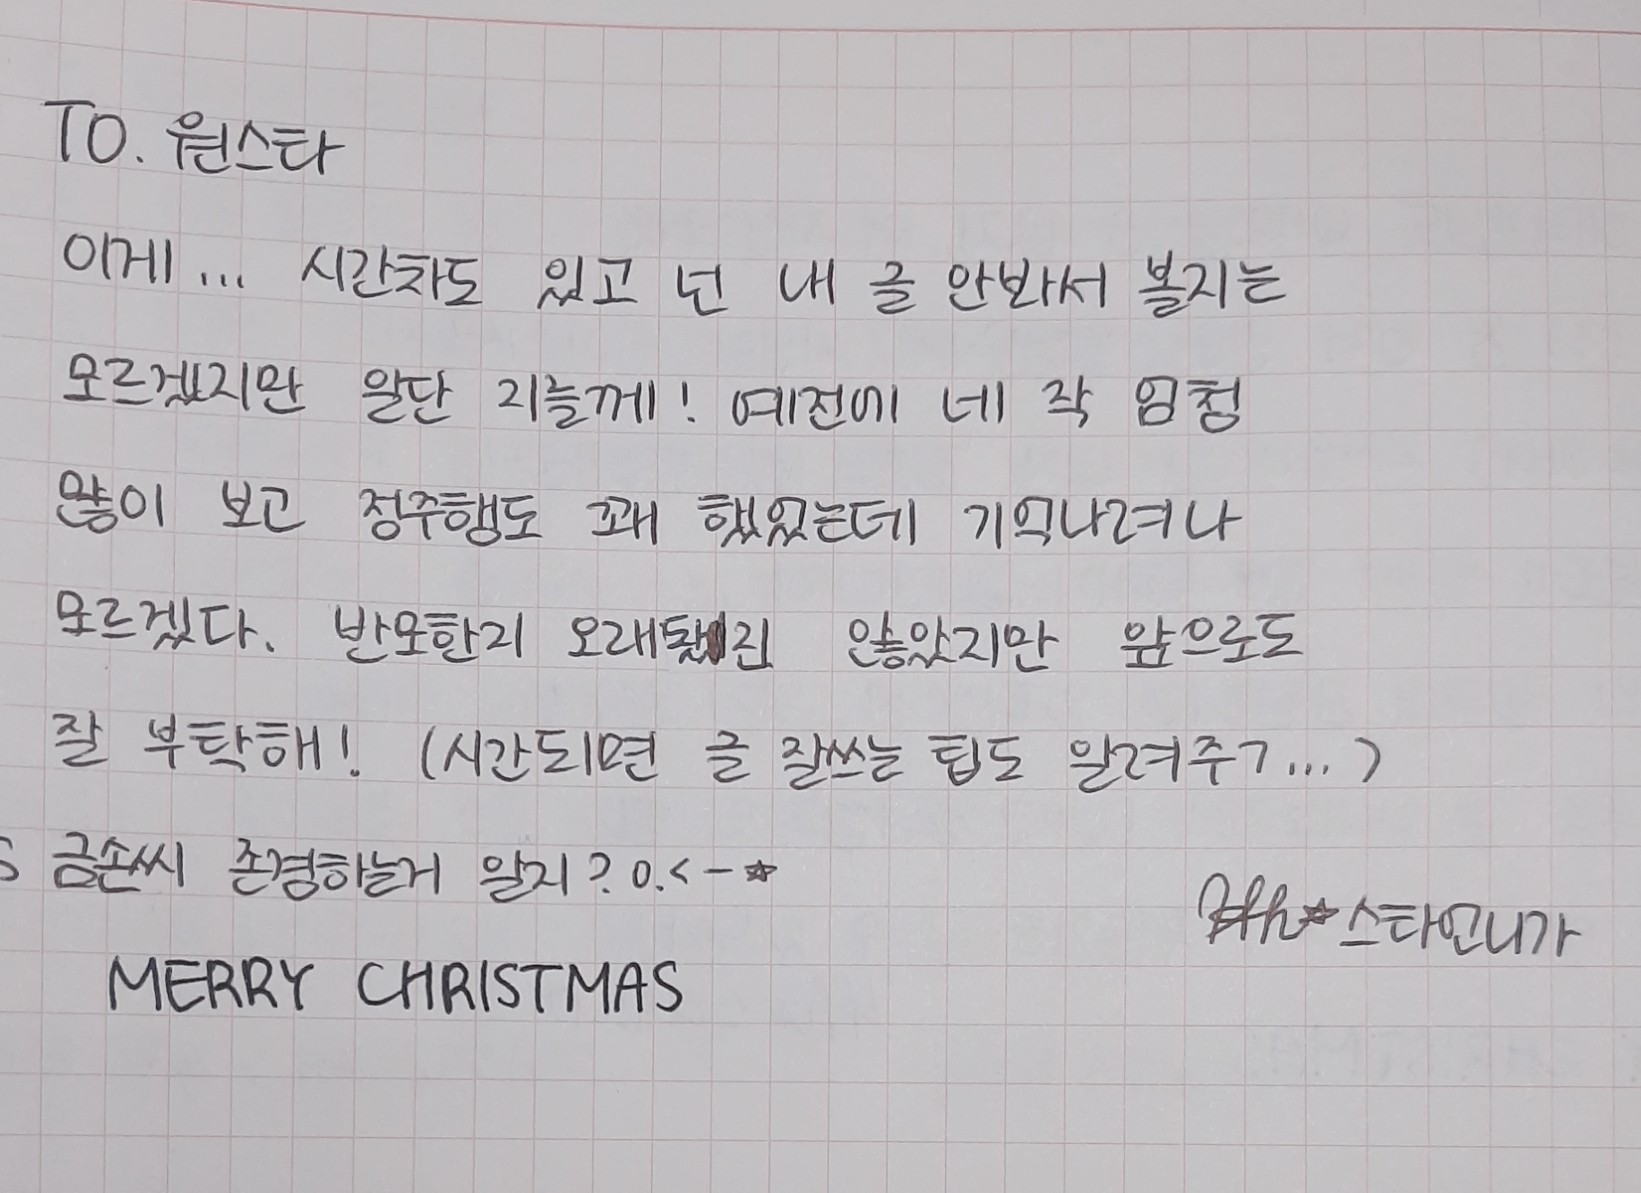 TO. 원스타
이게... 시간차도 있고 넌 내 글 안봐서 볼지는
모르겠지만 일단 지늘께! 예전에 네 작 엄청
많이 보고 정주행도 꽤 했었는데 기억나려나
모르겠다. 반모한지 오래됐진 않았지만 앞으로도
잘 부탁해! (시간되면 글 잘쓰는 팁도 알려주ㄱ...)
S 금손씨 존경하는거 알지? o.< -☆
스타언니가
MERRY CHRISTMAS